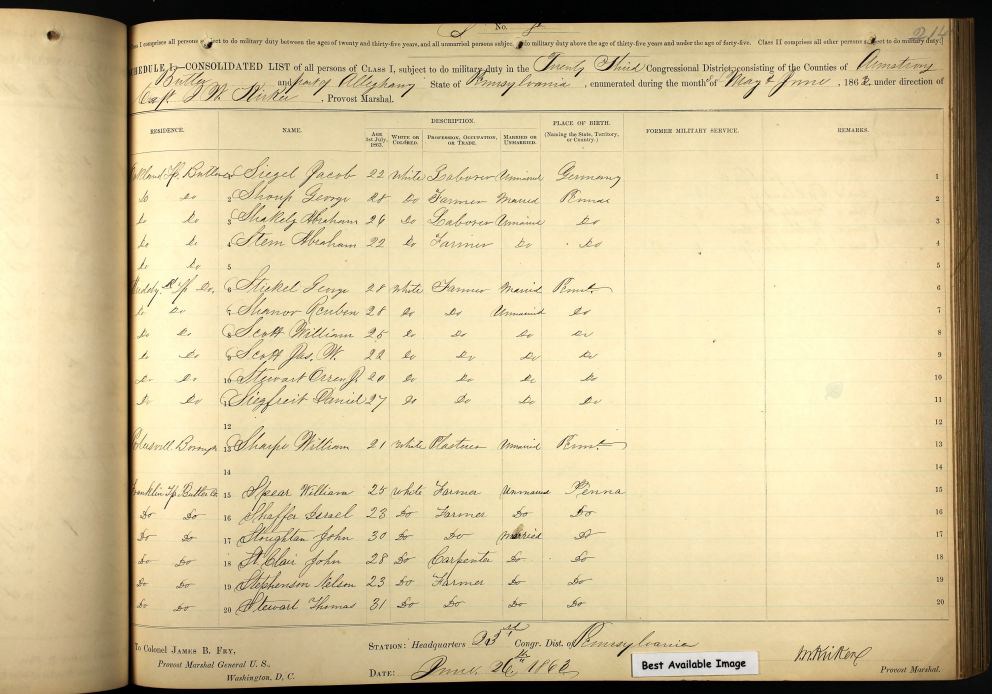 No.
Class I comprises all persons subject to do military duty between the ages of twenty and thirty-five years, and all unmarried persons subject to do military duty above the age of thirty-five years and under the age of forty-five. Class II comprises all other persons subject to do military duty.
SCHEDULE I.—CONSOLIDATED LIST of all persons of CLASS I, subject to do military duty in the Twenty Third Congressional District, consisting of the Counties of Armstrong
Butler and part of Allegheny State of Pennsylvania, enumerated during the month of May & June, 1863, under direction of
Capt J. W. Kirker, Provost Marshal.
RESIDENCE. NAME. DESCRIPTION. PLACE OF BIRTH. (Naming the State, Territory, or Country.) FORMER MILITARY SERVICE. REMARKS.
AGE 1st July, 1863. WHITE OR COLORED. PROFESSION, OCCUPATION, OR TRADE. MARRIED OR UNMARRIED.
Siegel Jacob 22 White Laborer Unmarried Germany 1
Do Do 2 Shoup George 28 Do Farmer Married Penna 2
Do Do 3 Abraham 26 Do Laborer Unmarried Do 3
Do Do 4 Stem Abraham 22 Do Farmer Do Do 4
Do Do 5 5
6 Stickel George 28 White Farmer Married 6
Do Do 7 Shanor Reuben 28 Do Do Unmarried Do 7
Do Do 8 Scott William 25 Do Do Do Do 8
Do Do 9 Scott Jas. W. 22 Do Do Do Do 9
Do Do 10 Stewart Orren 20 Do Do Do Do 10
Do Do 11 Siegfreit Daniel 27 Do Do Do Do 11
12 12
Borough 13 Sharpe William 21 White Plasterer Unmarried 13
14 14
Franklin Tp. Butler Co 15 Spear William 25 White Farmer Unmarried Penna 15
Do Do 16 Shaffer Israel 23 Do Farmer Do Do 16
Do Do 17 Stoughton John 30 Do Do Married Do 17
Do Do 18 St Clair John 28 Do Carpenter Do Do 18
Do Do 19 Stephenson Nelson 23 Do Farmer Do Do 19
Do Do 20 Stewart Thomas 31 Do Do Do Do 20
To Colonel JAMES B. FRY,
Provost Marshal General U. S.,
Washington, D. C.
STATION: Headquarters 23rd Congr. Dist. of Pennsylvania
DATE: June 26th 1863
Best Available Image
Provost Marshal.